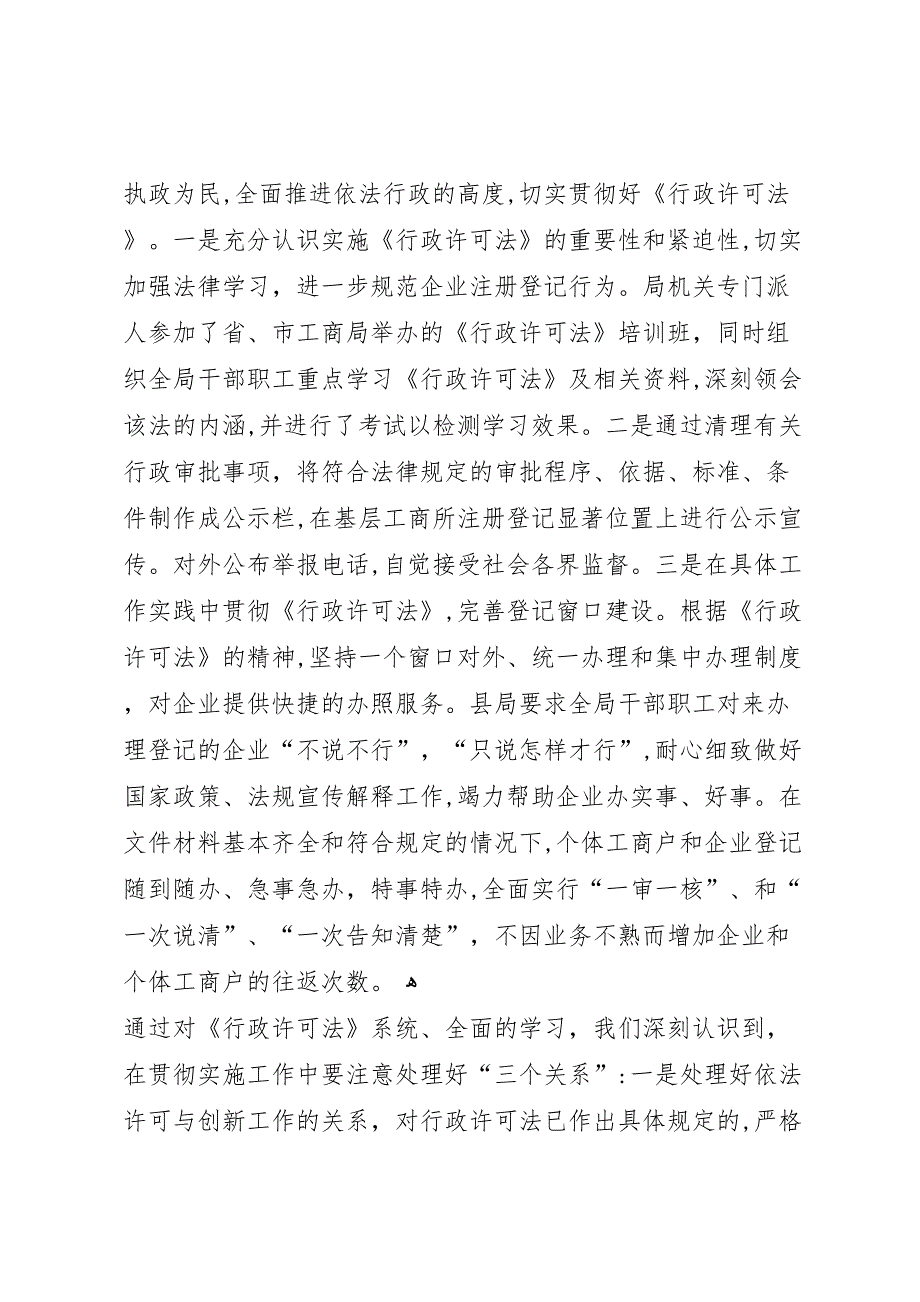 执政为民,全面推进依法行政的高度,切实贯彻好《行政许可法
》。一是充分认识实施《行政许可法》的重要性和紧迫性,切实
加强法律学习，进一步规范企业注册登记行为。局机关专门派
人参加了省、市工商局举办的《行政许可法》培训班，同时组
织全局干部职工重点学习《行政许可法》及相关资料,深刻领会
该法的内涵,并进行了考试以检测学习效果。二是通过清理有关
行政审批事项，将符合法律规定的审批程序、依据、标准、条
件制作成公示栏,在基层工商所注册登记显著位置上进行公示宣
传。对外公布举报电话,自觉接受社会各界监督。三是在具体工
作实践中贯彻《行政许可法》,完善登记窗口建设。根据《行政
许可法》的精神,坚持一个窗口对外、统一办理和集中办理制度
，对企业提供快捷的办照服务。县局要求全局干部职工对来办
理登记的企业“不说不行”，“只说怎样才行”,耐心细致做好
国家政策、法规宣传解释工作,竭力帮助企业办实事、好事。在
文件材料基本齐全和符合规定的情况下,个体工商户和企业登记
随到随办、急事急办，特事特办,全面实行“一审一核”、和“
一次说清”、“一次告知清楚”，不因业务不熟而增加企业和
个体工商户的往返次数。 ﻫ
通过对《行政许可法》系统、全面的学习，我们深刻认识到，
在贯彻实施工作中要注意处理好“三个关系”:一是处理好依法
许可与创新工作的关系，对行政许可法已作出具体规定的,严格